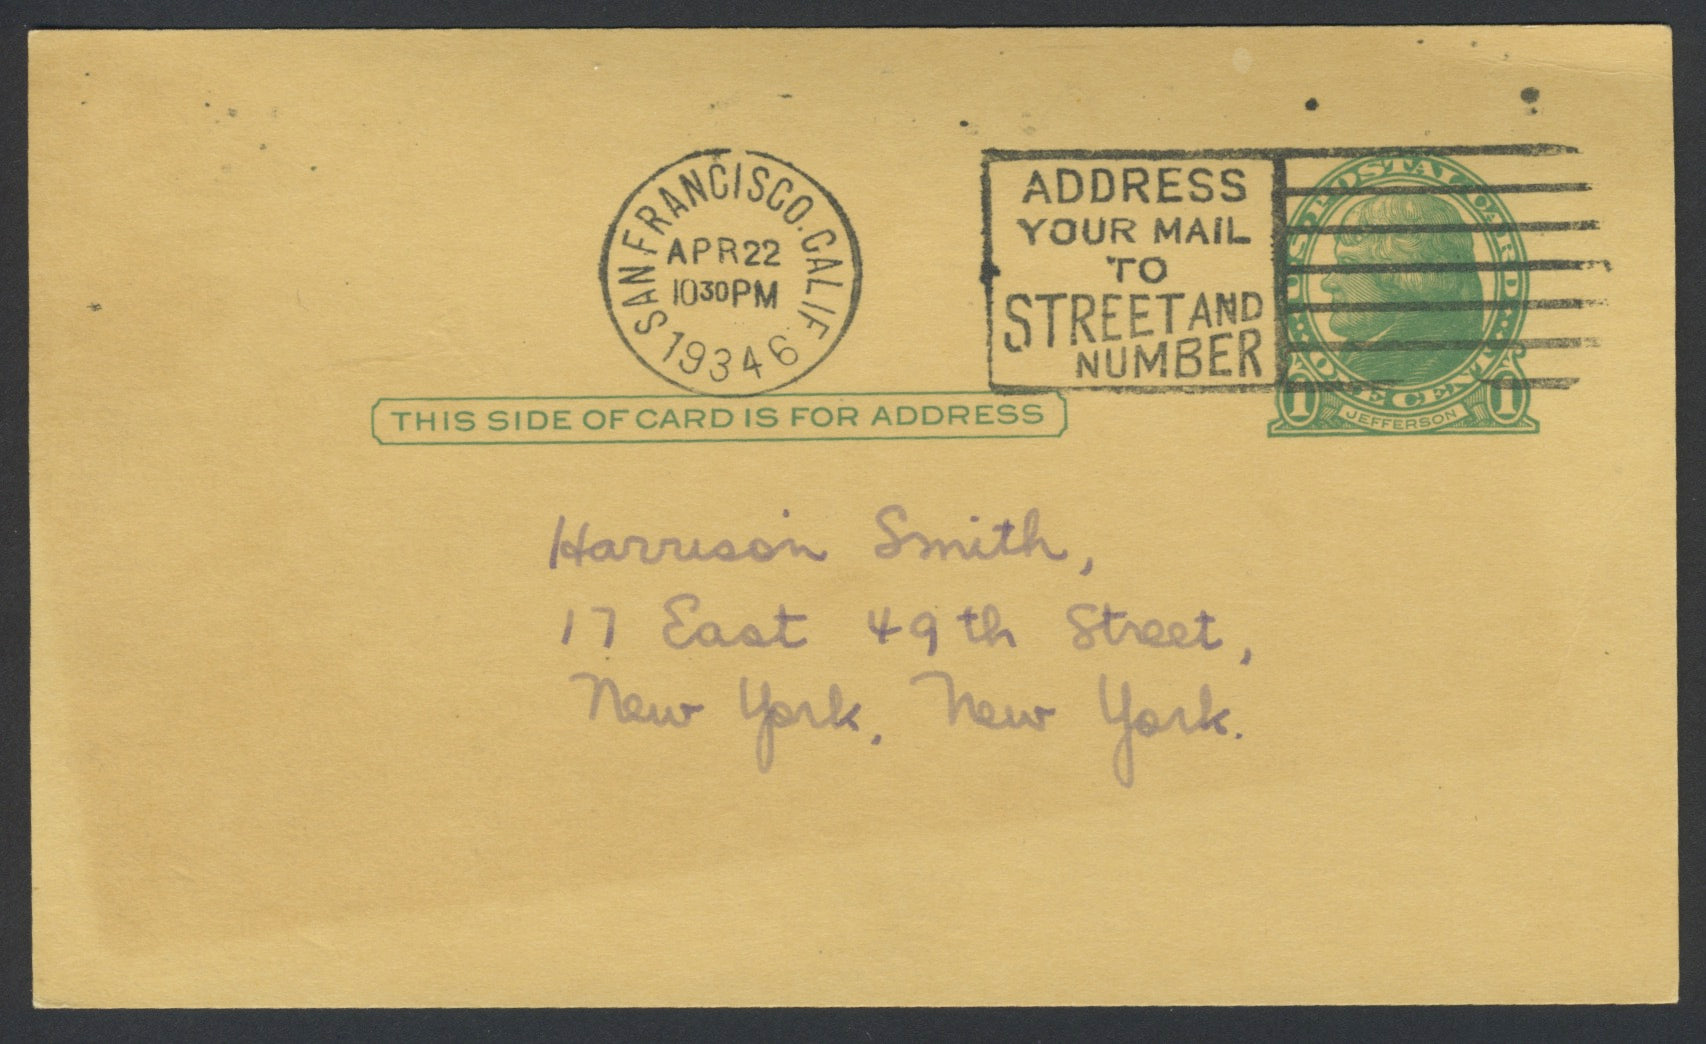 SAN FRANCISCO. CALIF
APR 22
10 30 PM
1934 6
ADDRESS
YOUR MAIL
TO
STREET AND
NUMBER
U.S. POSTAL CARD
ONE CENT
1 JEFFERSON 1
THIS SIDE OF CARD IS FOR ADDRESS
Harrison Smith,
17 East 49th Street,
New York, New York.